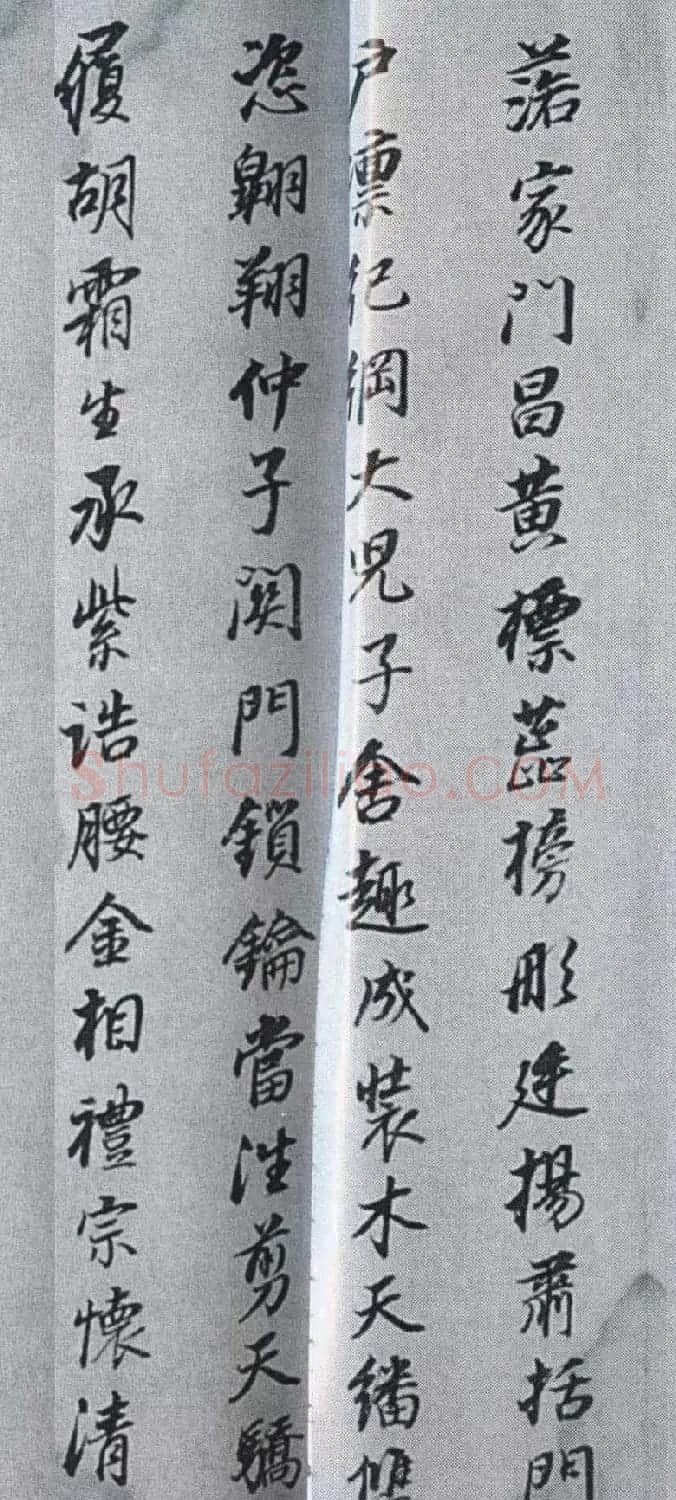 家門昌黃標蕊榜彤廷揚肅括門
戶凜紀綱大兒子舍趣成裝木天繙
恣翱翔仲子関門鎖鑰當 剪天驕
履胡霜生承紫誥腰金相禮宗懷清
Shufaziliao.COM